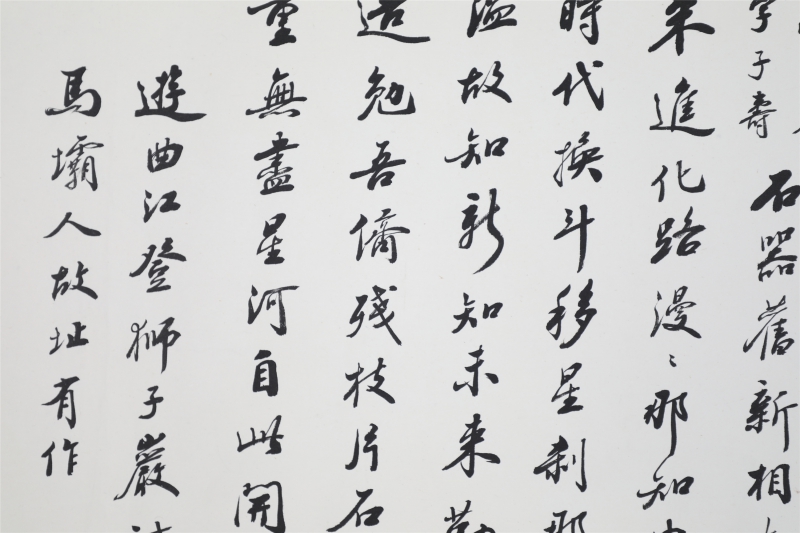 字子壽 石器舊新相
來進化路漫漫那知
時代換斗移星剎那
溫故知新知未來勤
造勉吾儕殘枝片石
重無盡星河自此開
遊曲江登獅子巖
馬壩人故址有作